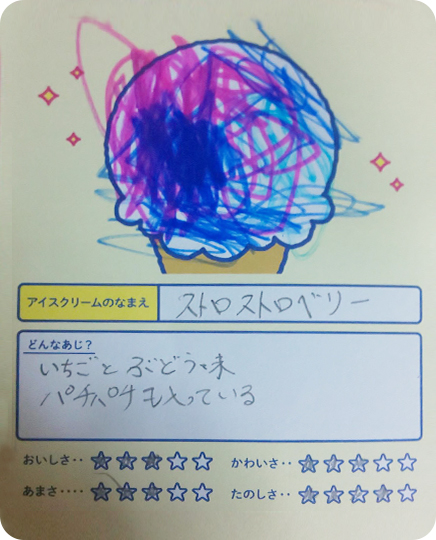 アイスクリームのなまえ
ストロストロベリー
どんなあじ？
いちごとぶどう味
パチパチも入っている
おいしさ‥
かわいさ‥
あまさ‥‥
たのしさ‥